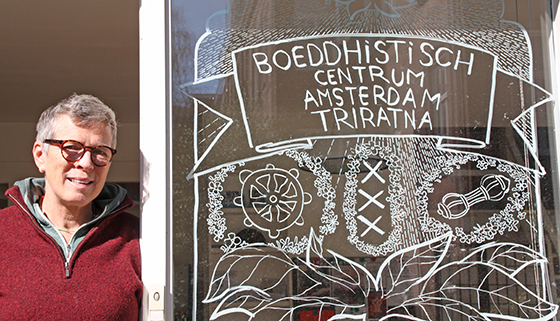 BOEDDHiSTiSCH
CENTRUM
AMSTERDAM
TRIRATNA